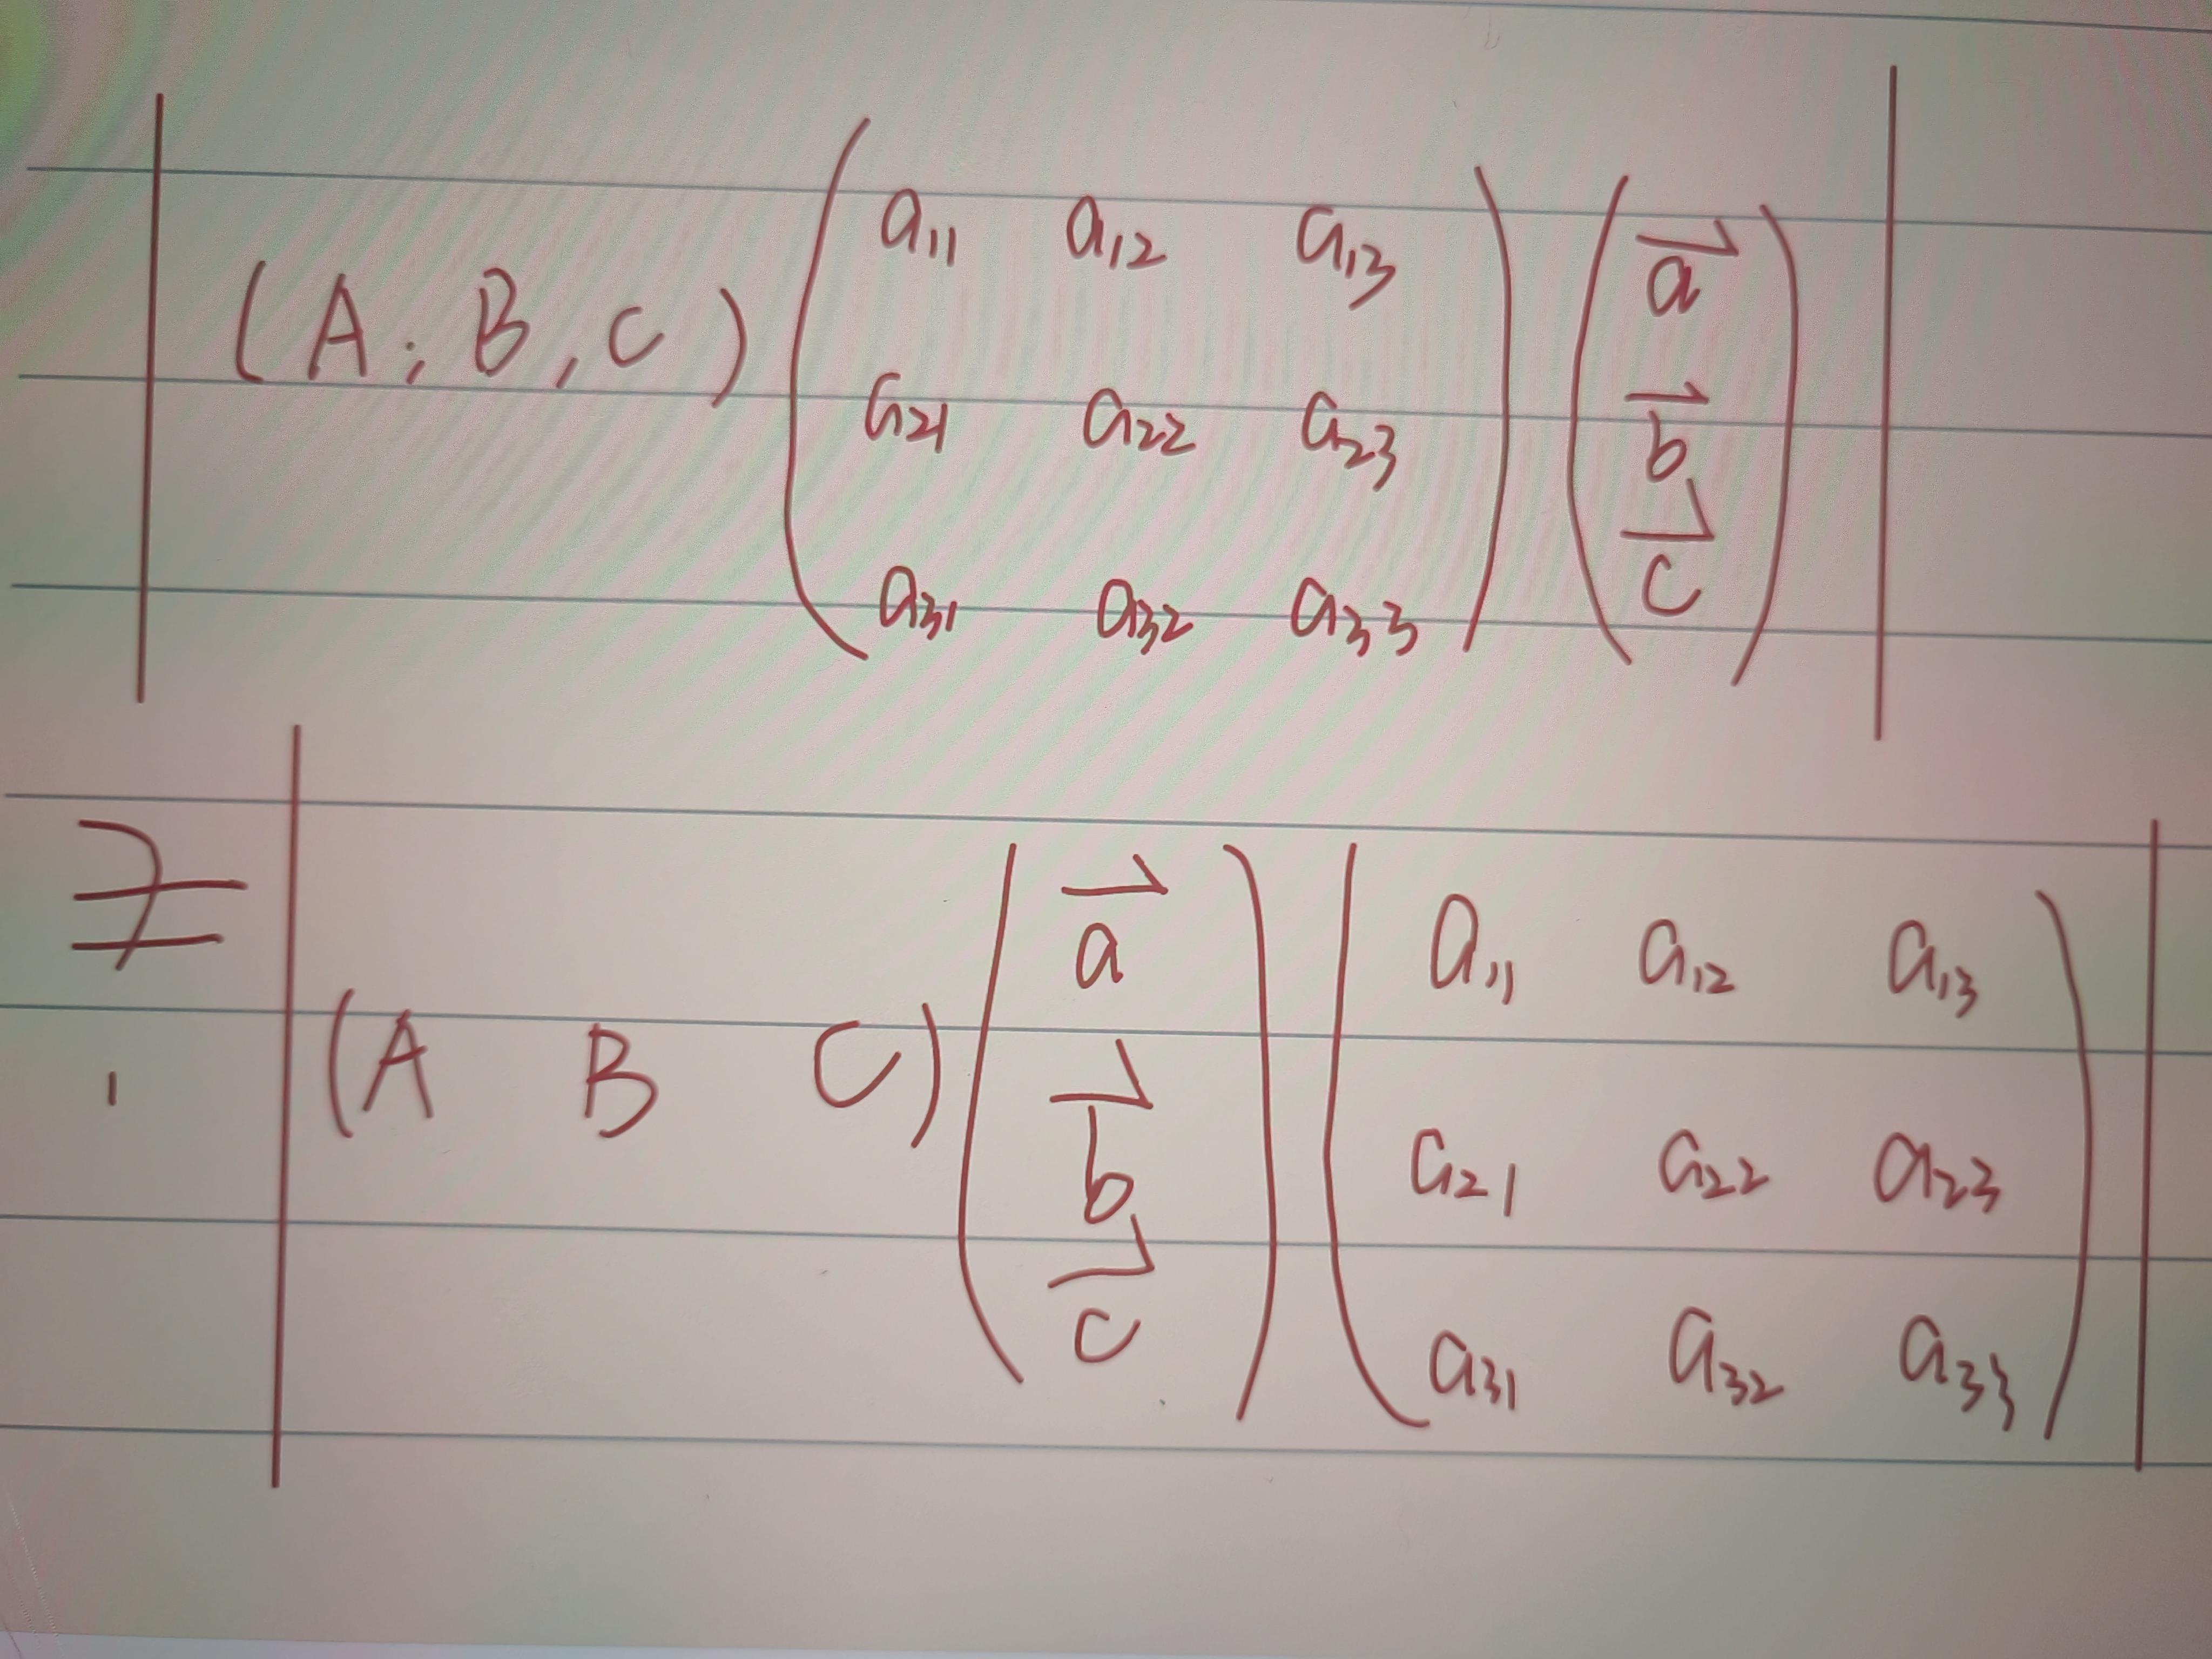 | (A, B, C) ( a₁₁ a₁₂ a₁₃
a₂₁ a₂₂ a₂₃
a₃₁ a₃₂ a₃₃ ) ( a⃗
b⃗
c⃗ ) |
≠ | (A B C) ( a⃗
b⃗
c⃗ ) ( a₁₁ a₁₂ a₁₃
a₂₁ a₂₂ a₂₃
a₃₁ a₃₂ a₃₃ ) |